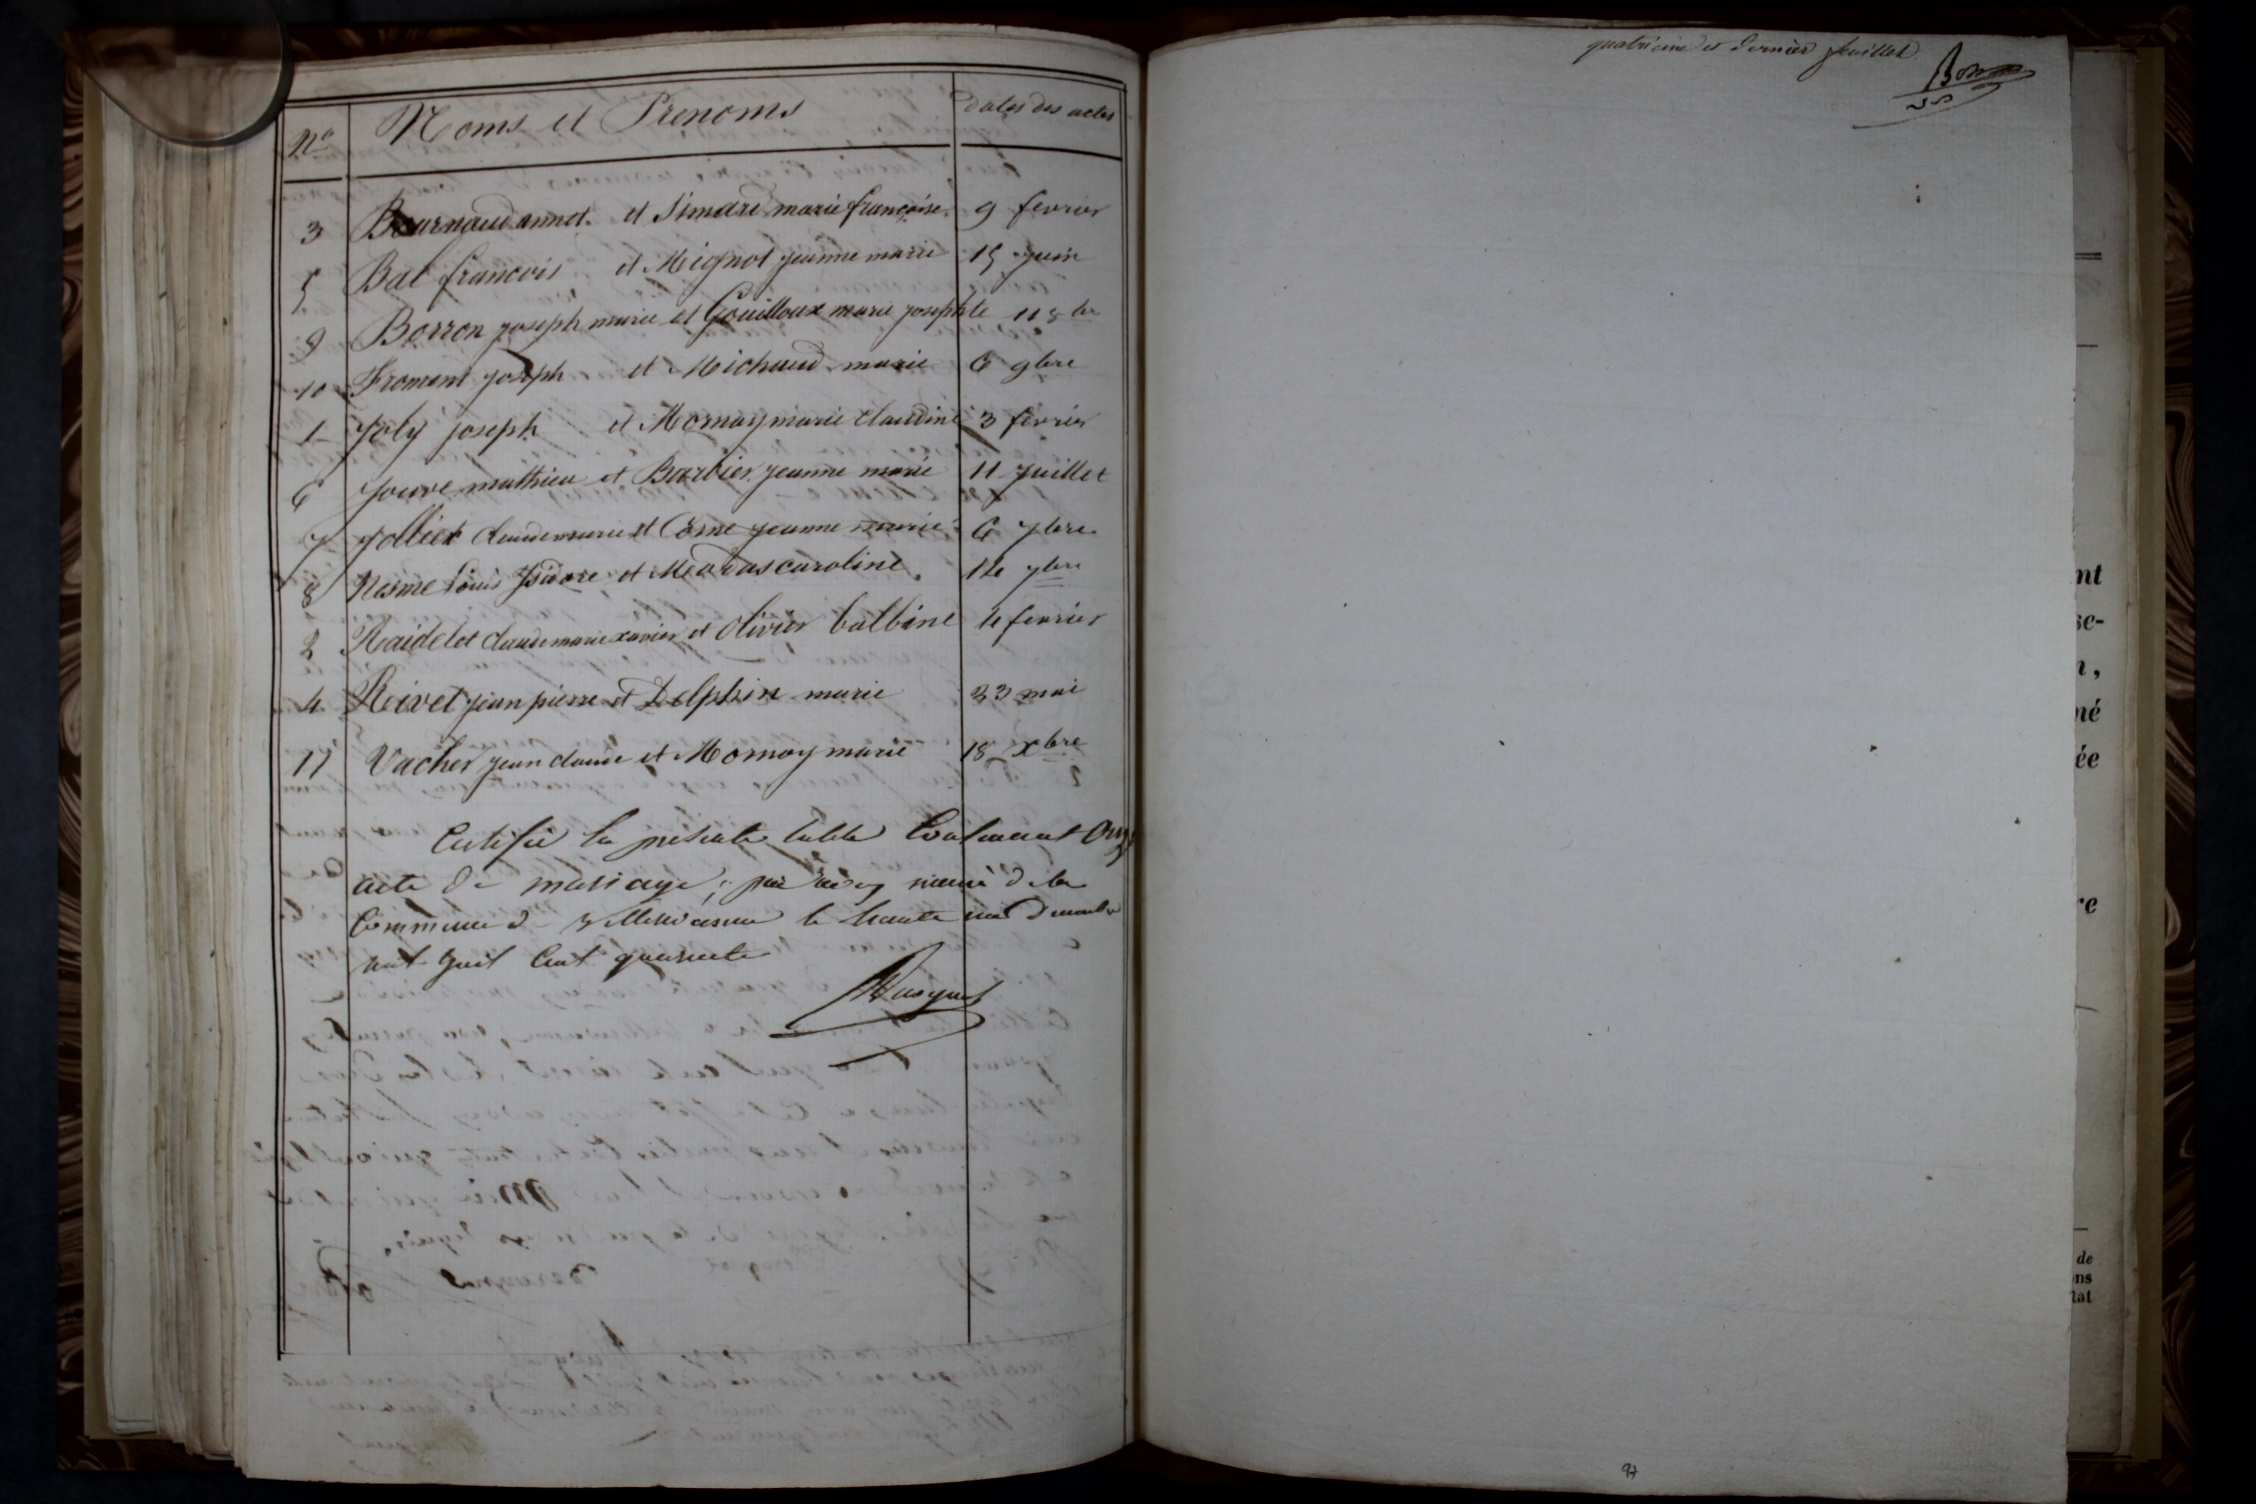 N° Noms et Prenoms dates des actes
3 Bournaud annet et Simard marie françoise 9 fevrier
5 Bal francois et Mignot jeanne marie 15 juin
9 Borron joseph marie et Gouilloux marie josephte 11 8bre
10 Froment joseph et Michaud marie 6 9bre
1 Joly joseph et Mornay marie claudine 3 fevrier
6 Jouve mathieu et Barbier jeanne marie 11 juillet
7 Jolliet claude marie et Corne jeanne marie 6 7bre
8 Nesme louis Isidore et caroline 14 7bre
2 Raidelet claude marie xavier et Olivier balbine 4 fevrier
4 Rivet jean pierre et Delphin marie 23 mai
11 Vacher jean claude et Mornay marie 18 xbre
Certifié la présente table Contenant Onze
acte de mariage, par nous maire de la
Commune de le trente un Decembre
mil huit Cent quarante
quatrieme et dernier feuillet
97
nt
se-
n,
né
ée
re
de
ons
tat